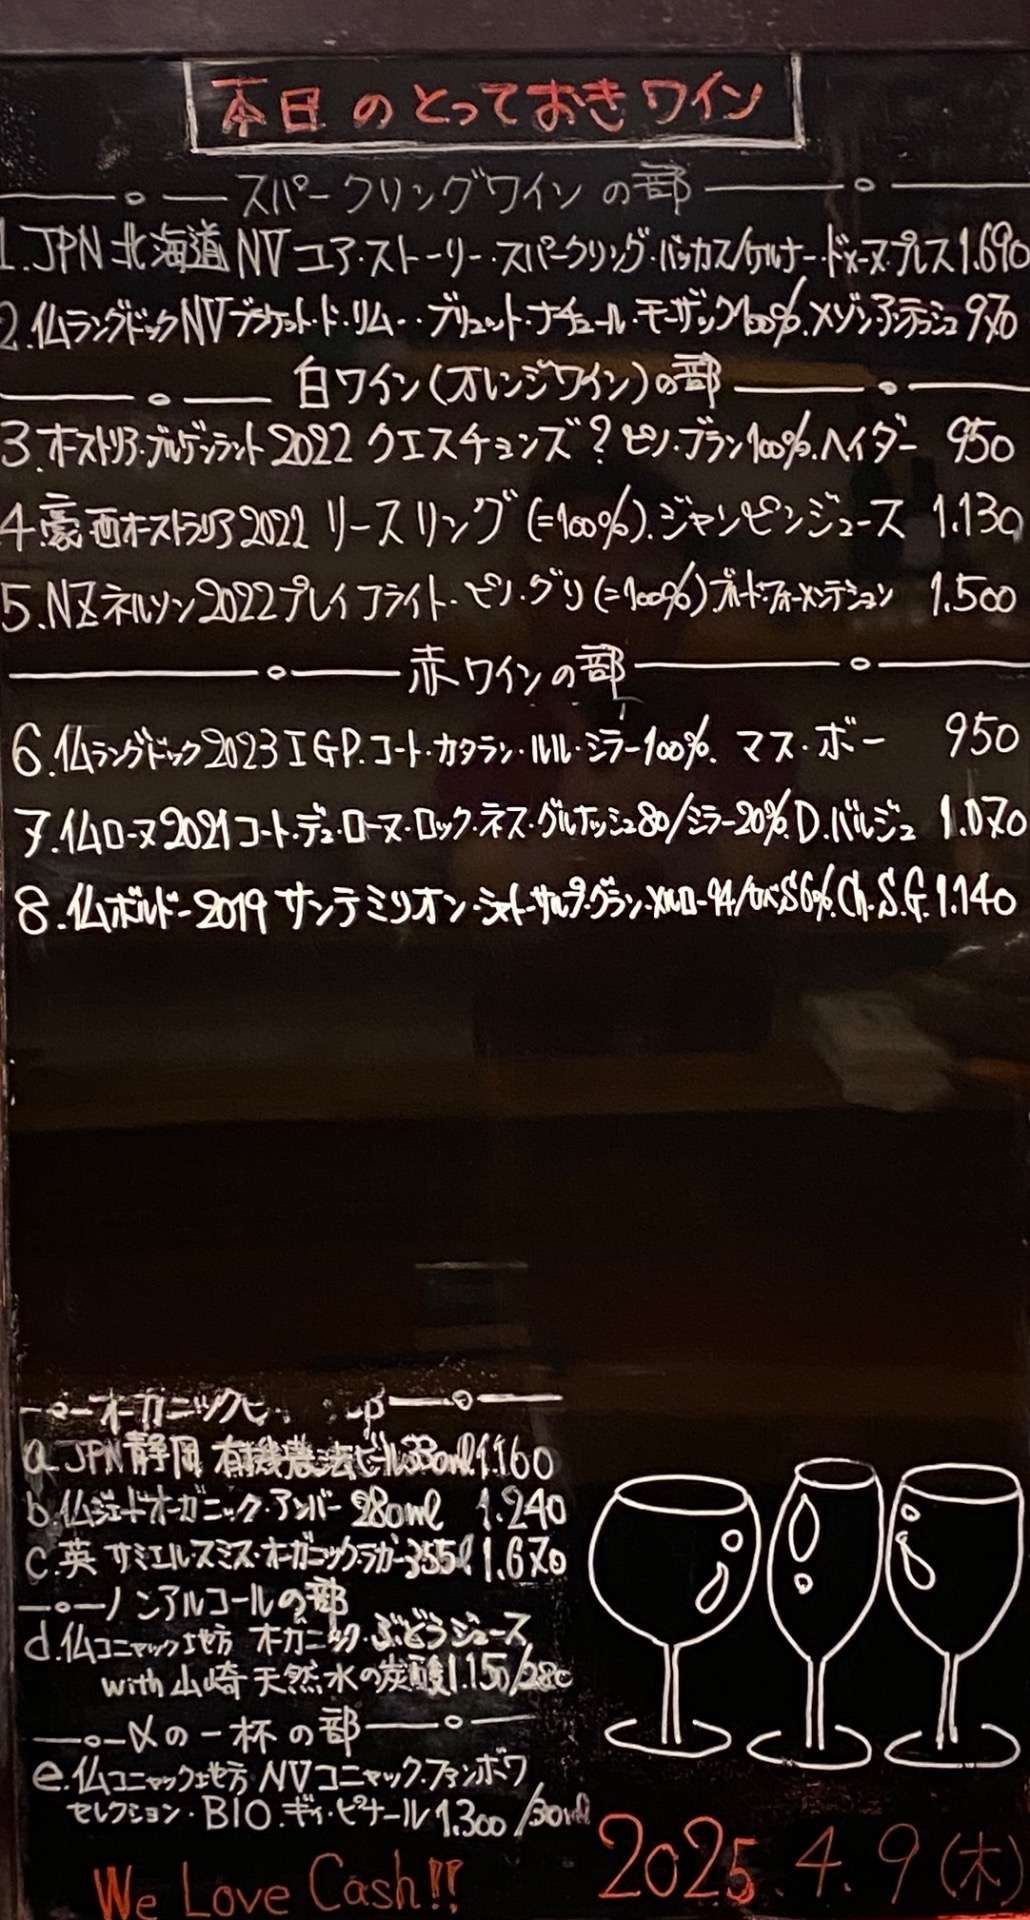 本日のとっておきワイン
スパークリングワインの部
1.JPN北海道NVコア・ストーリー・スパークリング・バッカス/ケルナー・ドメーヌ・プレス1.690
2.仏ラングドックNVブランケット・ド・リムー・ブリュット・ナチュール・モーザック100%.メゾン・アンテッシュ970
白ワイン(オレンジワイン)の部
3.オーストリア・ブルゲンラント2022クエスチョンズ?ピノ・ブラン100%.ヘイダー 950
4.豪西オーストラリア2022リースリング(=100%).ジャンピンジュース 1.130
5.NZネルソン2022プレイフライト・ピノ・グリ(=100%) 1.500
赤ワインの部
6.仏ラングドック2023IGP.コート・カタラン・ルル・シラー100%. マス・ボー 950
7.仏ローヌ2021コート・デュ・ローヌ・ロック・ネス・グルナッシュ80/シラー20%.D.バルジュ 1.070
8.仏ボルドー2019サンテミリオン・シャトー・サルプ・グラン・メルロー94/カベS6%.Ch.S.G.1.140
オーガニックビ
a.JPN静岡 有機農法ビール330ml1.160
b.仏ジェードオーガニック・アンバー280ml 1.240
c.英 サミエルスミス・オーガニック・ラガー355l1.670
ノンアルコールの部
d.仏コニャック地方 オーガニック・ぶどうジュース
with山崎天然水の炭酸1.150/280
〆の一杯の部
e.仏コニャック地方NVコニャック・ファンボワ
セレクション・BIO.ギィ・ピナール1.300/30ml
We Love Cash!!
2025.4.9(木)